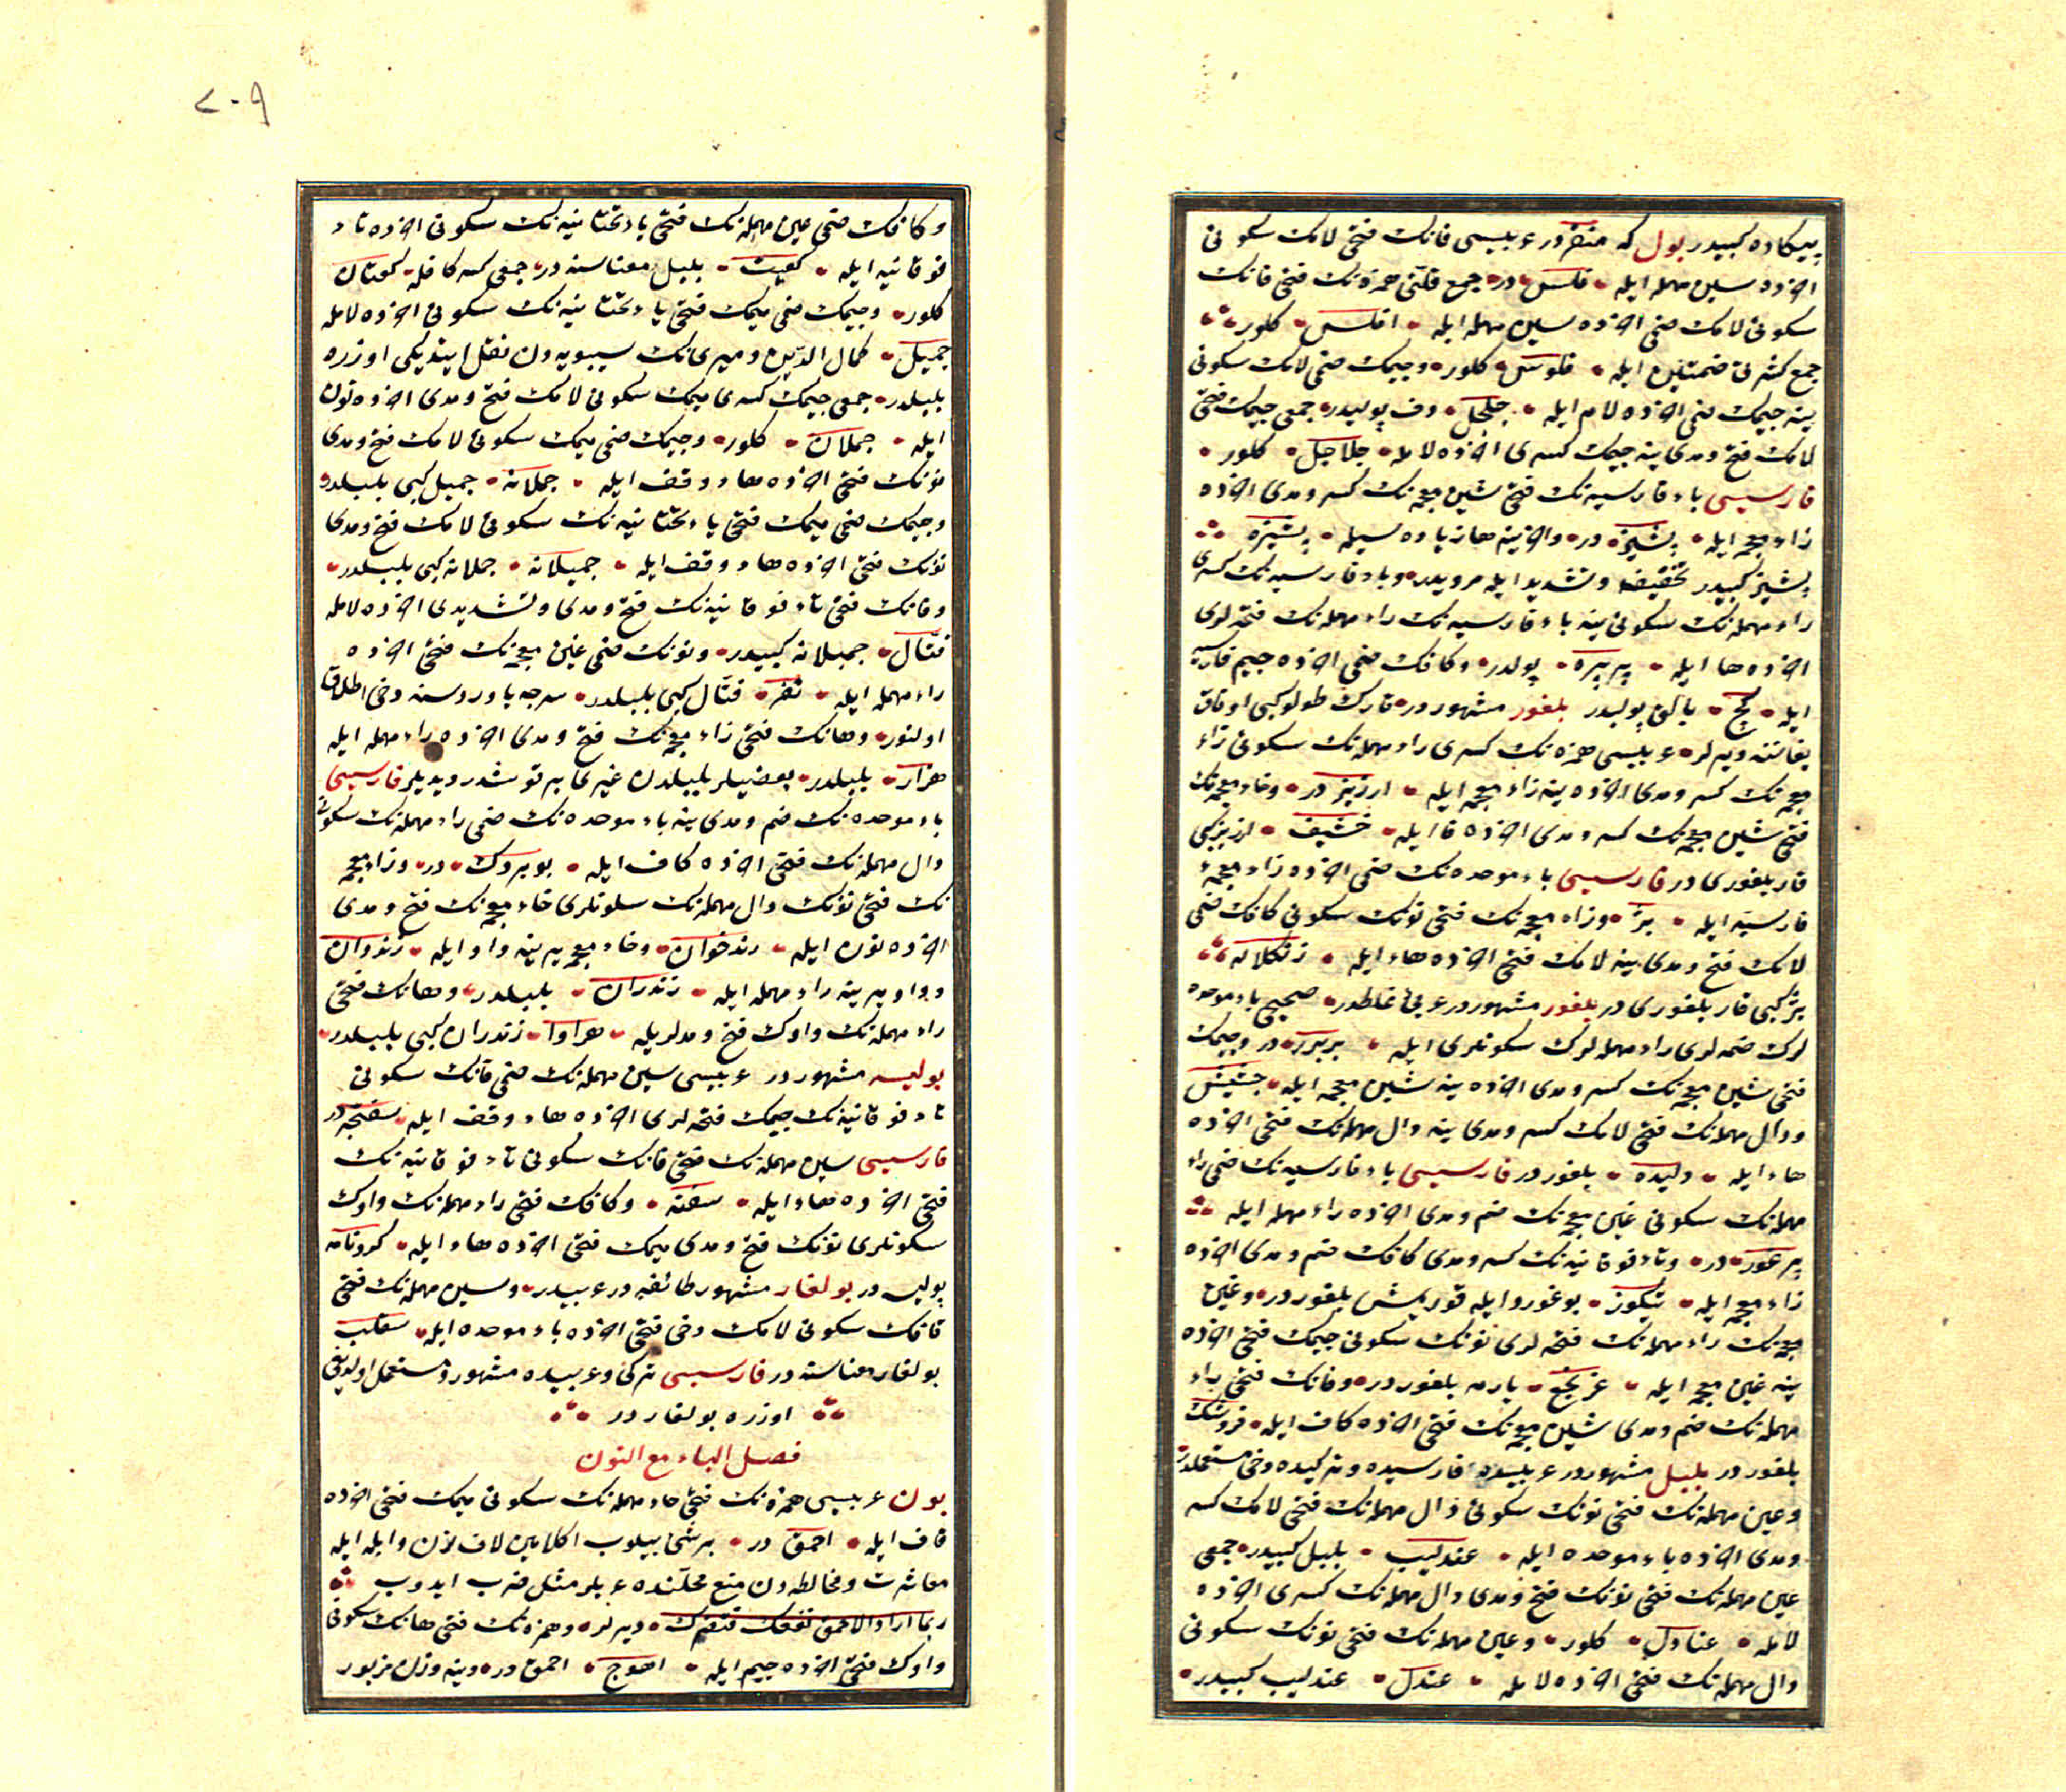 پیکاده کبیدر بول که منقردر عربیسی فانك فتحی لامك سكونی
آخرنده سین مهمله ایله فلس در جمع قلتی همزه نك فتحی فانك
سكونی لامك ضمی آخرنده سین مهمله ایله افلس كلور
جمع كثرتی ضمتین ایله فلوس كلور و جیمك ضمی لامك سكونی
ینه جیمك ضمی آخرنده لام ایله جلجل دف پولیدر جمعی جیمك فتحی
لامك فتح و مدی ینه جیمك كسری آخرنده لامله جلاجل كلور
فارسیسی باء فارسیه نك فتحی شین معجمه نك كسر و مدی آخرنده
زاء معجمه ایله پشیز در و آخرینه ها زیاده سیله پشیزه
پشیز كبیدر تخفیف و تشدید ایله مرویدر و باء فارسیه نك كسری
راء مهمله نك سكونی ینه باء فارسیه نك راء مهمله نك فتحه لری
آخرنده ها ایله پرپره پولدر و كافك ضمی آخرنده جیم فارسیه
ایله كج بالق پولیدر بلغور مشهوردر قارك طولو كبی اوفاق
یغاننه دیرلر عربیسی همزه نك كسری راء مهمله نك سكونی زاء
معجمه نك كسر و مدی آخرنده ینه زاء معجمه ایله ارزیز در و خاء معجمه نك
فتحی شین معجمه نك كسر و مدی آخرنده فا ایله خشیف ارزیز كبی
قار بلغوری در فارسیسی باء موحده نك ضمی آخرنده زاء معجمهٔ
فارسیه ایله بژ و زاء معجمه نك فتحی نونك سكونی كافك ضمی
لامك فتح و مدی ینه لامك فتحی آخرنده هاء ایله زنكلاله
بژ كبی قار بلغوری در بلغور مشهوردر عربی غلطدر صحیحی باء موحده
لرك ضمه لری راء مهمله لرك سكونلری ایله بربردر و جیمك
فتحی شین معجمه نك كسر و مدی آخرنده ینه شین معجمه ایله جشیش
و دال مهمله نك فتحی لامك كسر و مدی ینه دال مهمله نك فتحی آخرنده
هاء ایله دلیده بلغور در فارسیسی باء فارسیه نك ضمی راء
مهمله نك سكونی غین معجمه نك ضم و مدی آخرنده راء مهمله ایله
پرغور در و تاء فوقانیه نك كسر و مدی كافك ضم و مدی آخرنده
زاء معجمه ایله تیكوز یوغوردایله قوریمش بلغوردر و غین
معجمه نك راء مهمله نك فتحه لری نونك سكونی جیمك فتحی آخرنده
ینه غین معجمه ایله غرنجغ یارمه بلغوردر و فانك فتحی راء
مهمله نك ضم و مدی شین معجمه نك فتحی آخرنده كاف ایله فروشك
بلغور در بلبل مشهوردر عربیده فارسیده و تركیده دخی مستعملدر
و عین مهمله نك فتحی نونك سكونی دال مهمله نك فتحی لامك كسر
و مدی آخرنده باء موحده ایله عندلیب بلبل كبیدر جمعی
عین مهمله نك فتحی نونك فتح و مدی دال مهمله نك كسری آخرنده
لامله عنادل كلور و عین مهمله نك فتحی نونك سكونی
دال مهمله نك فتحی آخرنده لامله عندل عندلیب كبیدر
۲۰۹
و كافك ضمی عین مهمله نك فتحی یاء تحتانیه نك سكونی آخرنده تاء
فوقانیه ایله كعیت بلبل معناسنه در جمعی كسر كافله كعتان
كلور و جیمك ضمی میمك فتحی یاء تحتانیه نك سكونی آخرنده لامله
جمیل كمال الدین دمیری نك سیبویه دن نقل ایتدیكی اوزره
بلبلدر جمعی جیمك كسری میمك سكونی لامك فتح و مدی آخرنده نون
ایله جملان كلور و جیمك ضمی میمك سكونی لامك فتح و مدی
نونك فتحی آخرنده هاء وقف ایله جملانه جمیل كبی بلبلدر
و جیمك ضمی میمك فتحی یاء تحتانیه نك سكونی لامك فتح و مدی
نونك فتحی آخرنده هاء وقف ایله جمیلانه جملانه كبی بلبلدر
و فانك فتحی تاء فوقانیه نك فتح و مدی و تشدیدی آخرنده لامله
فتال جمیلانه كبیدر و نونك ضمی غین معجمه نك فتحی آخرنده
راء مهمله ایله نغر فتال كبی بلبلدر سرجه یاوروسنه دخی اطلاق
اولنور و هانك فتحی زاء معجمه نك فتح و مدی آخرنده راء مهمله ایله
هزار بلبلدر بعضیلر بلبلدن غیری بر قوشدر دیدیلر فارسیسی
باء موحده نك ضم و مدی ینه باء موحده نك ضمی راء مهمله نك سكونی
دال مهمله نك فتحی آخرنده كاف ایله بوبردك در و زاء معجمه
نك فتحی نونك دال مهمله نك سكونلری خاء معجمه نك فتح و مدی
آخرنده نون ایله زندخوان و خاء معجمه یرینه واو ایله زندوان
و واو یرینه راء مهمله ایله زندران بلبلدر و هانك فتحی
راء مهمله نك واوك فتح و مدلریله هراوا زندران كبی بلبلدر
بولیسه مشهوردر عربیسی سین مهمله نك ضمی فانك سكونی
تاء فوقانیه نك جیمك فتحه لری آخرنده هاء وقف ایله سفتجه در
فارسیسی سین مهمله نك فتحی فانك سكونی تاء فوقانیه نك
فتحی آخرنده هاء ایله سفته و كافك فتحی راء مهمله نك واوك
سكونلری نونك فتح و مدی میمك فتحی آخرنده هاء ایله كرونامه
پولیسه در بولغار مشهور طائفه در عربیدر و سین مهمله نك فتحی
قافك سكونی لامك دخی فتحی آخرنده باء موحده ایله سقلب
بولغار معناسنه در فارسیسی تركی و عربیده مشهور و مستعمل اولدیغی
اوزره بولغاردر
فصل الباء مع النون
بون عربیسی همزه نك فتحی حاء مهمله نك سكونی میمك فتحی آخرنده
قاف ایله احمق در برشی بیلوب اكلامین لاف لزن و ابله ایله
معاشرت و مخالطه دن منع محلنده عربلر مثل ضرب ایدوب
ربما اراد الاحمق نفعك فضرك دیرلر و همزه نك فتحی هانك سكونی
واوك فتحی آخرنده جیم ایله اهوج احمق در و ینه وزن مزبور